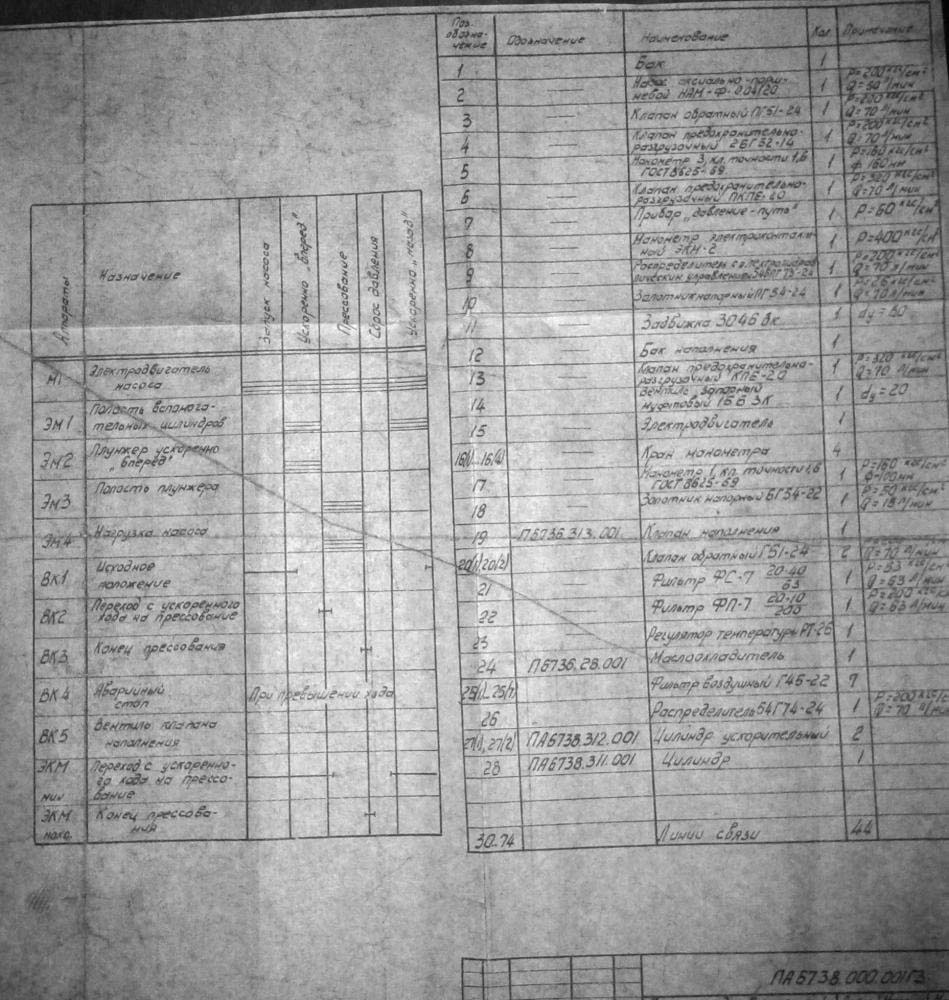 Поз. обозна-чение Обозначение Наименование Кол. Примечание
1 Бак 1
2 — Насос аксиально-порш-
невой НАМ-Ф- 1 P=200 кгс/см²
Q=50 л/мин
3 — Клапан обратный ПГ51-24 1 P=200 кгс/см²
Q=70 л/мин
4 — Клапан предохранительно-
разгрузочный 2БГ52-14 1 P=200 кгс/см²
Q=70 л/мин
5 — Манометр 3, кл. точности 1,6
ГОСТ 8625-69 1 P=160 кгс/см²
ф 160 мм
6 — Клапан предохранительно-
разгрузочный ПКПЕ-20 1 P=320 кгс/см²
Q=70 л/мин
7 — Прибор „давление-путь" 1 P=60 кгс/см²
8 — Манометр электроконтакт-
ный ЭКМ-2 1 P=400 кгс/см²
9 — Распределитель с электрогидрав-
лическим управлением 54ПГ73-24 1 P=200 кгс/см²
Q=70 л/мин
10 — Золотник напорный ПГ54-24 1 кгс/см²
Q=70 л/мин
11 — Задвижка 3046 бк 1 dy=80
12 — Бак наполнения 1
13 — Клапан предохранительно-
разгрузочный КПЕ-20 1 P=320 кгс/см²
Q=70 л/мин
14 Вентиль запорный
муфтовый 15Б 3К 1 dy=20
15 — Электродвигатель 1
16(1)...16(4) — Кран манометра 4
17 — Манометр 1, кл. точности 1,6
ГОСТ 8625-69 1 P=160 кгс/см²
Ф-100мм
18 — Золотник напорный БГ54-22 1 P=50 кгс/см²
Q=18 л/мин
19 ПБ736.313.001 Клапан наполнения 1
20(1),20(2) Клапан обратный Г51-24 2 Q=70 л/мин
21 — Фильтр ФС-7 20-40/63 1 P=63 кгс/см²
Q=63 л/мин
22 — Фильтр ФП-7 20-10/200 1 P=200 кгс/см²
Q=63 л/мин
23 Регулятор температуры РТ-25 1
24 ПБ736.28.001 Маслоохладитель 1
25(1)...25(7) Фильтр воздушный Г45-22 7
26 Распределитель 54Г74-24 1 P=200 кгс/см²
Q=70 л/мин
27(1),27(2) ПАБ738.312.001 Цилиндр ускорительный 2
28 ПАБ738.311.001 Цилиндр 1
30..74 Линии связи 44
Аппараты Назначение Запуск насоса Ускоренно „вперед" Прессование Сброс давления Ускоренно „назад"
М1 Электродвигатель
насоса
ЭМ1 Полость вспомога-
тельных цилиндров
ЭМ2 Плунжер ускоренно
„вперед"
ЭМ3 Полость плунжера
ЭМ4 Нагрузка насоса
ВК1 Исходное
положение
ВК2 Переход с ускоренного
хода на прессование
ВК3 Конец прессования
ВК4 Аварийный
стоп При превышении хода
ВК5 Вентиль клапана
наполнения
ЭКМ
мин Переход с ускоренно-
го хода на прессо-
вание
ЭКМ
макс. Конец прессова-
ния
ПАБ738.000.001Г3